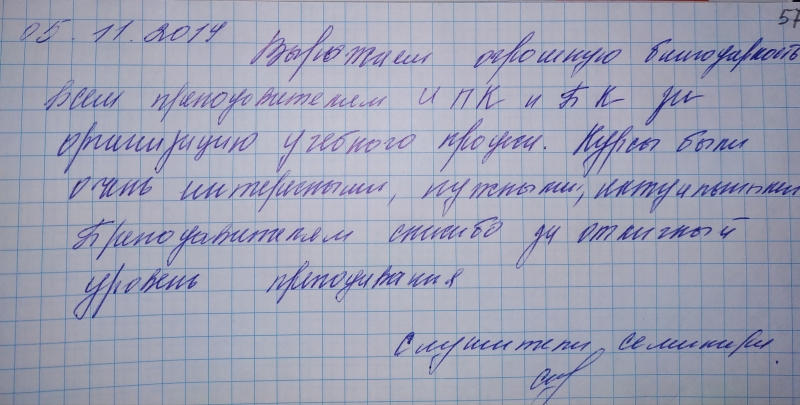 57
05.11.2019 Выражаем огромную благодарность
всем преподавателям ИПК и БК за
организацию учебного процесса. Курсы были
очень интересными, нужными, актуальными
Преподавателям спасибо за отличный
уровень преподавания
Слушатели семинара